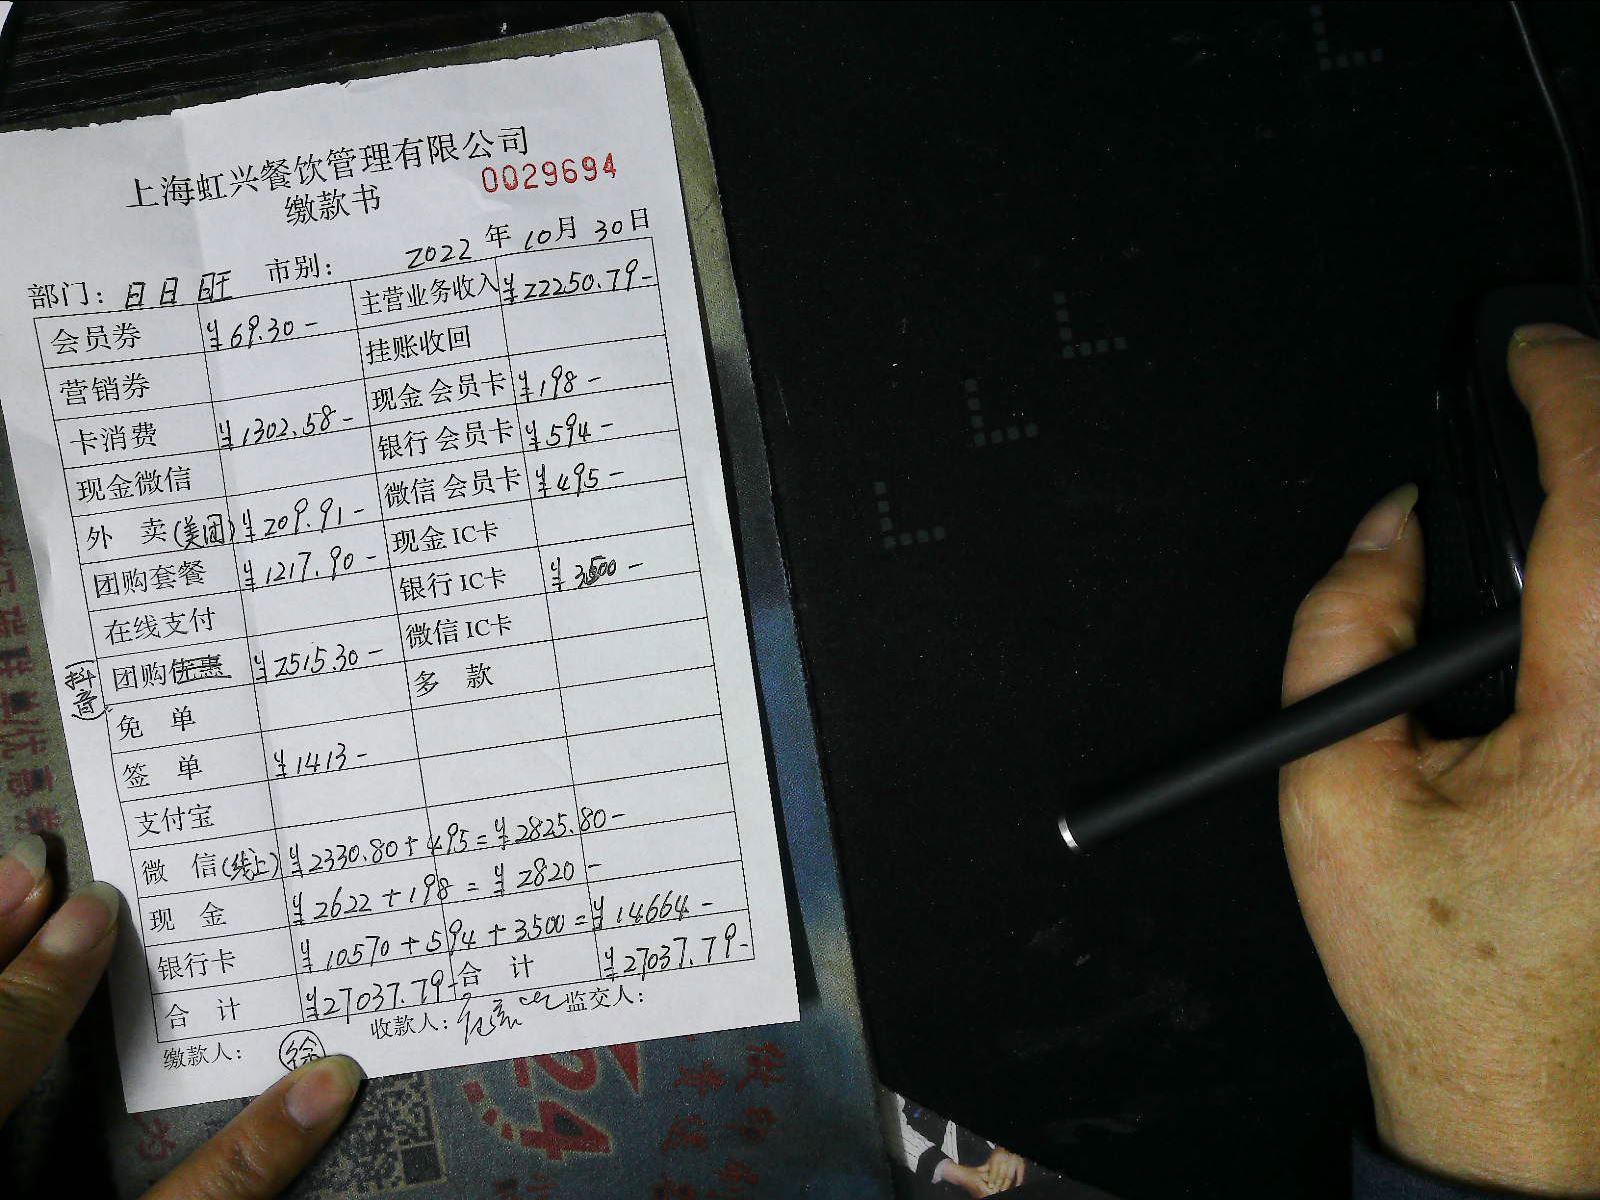 上海虹兴餐饮管理有限公司
缴款书 0029694
部门：日日旺 市别： 2022年10月30日
会员券 ¥69.30- 主营业务收入 ¥22250.79-
营销券 挂账收回
卡消费 ¥1302.58- 现金会员卡 ¥198-
现金微信 银行会员卡 ¥594-
外卖(美团) ¥209.91- 微信会员卡 ¥495-
团购套餐 ¥1217.90- 现金IC卡
在线支付 银行IC卡 ¥3500-
(抖音) 团购优惠 ¥2515.30- 微信IC卡
免单 多款
签单 ¥1413-
支付宝
微信(线上) ¥2330.80+495=¥2825.80-
现金 ¥2622+198=¥2820-
银行卡 ¥10570+594+3500=¥14664-
合计 ¥27037.79- 合计 ¥27037.79-
缴款人： 徐 收款人： 监交人：
24